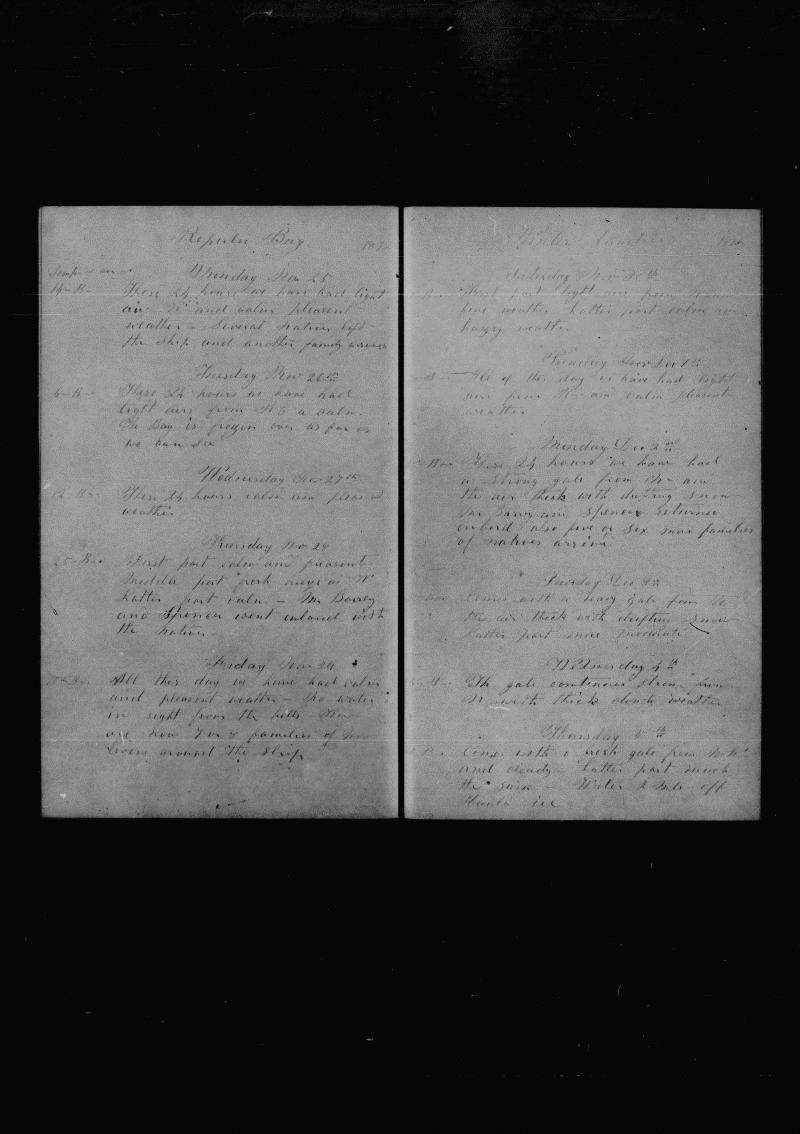 Repulse Bay 187
Temp - air -
Munday Nov 25
14 - B - These 24 hours we have had light
air N and calm pleasent
weather - Several natives left
the Ship and another family arrived
Tuesday Nov 26th
6 - B - These 24 hours we have had
light airs from N E & calm.
The Bay is frozen over as far as
we can see
Wednesday Nov 27th
12 - B - These 24 hours calm and pleasent
weather
Thursday Nov 28
25 - B - First part calm and pleasent
Middle part fresh
Latter part calm. - Mr Barrey
and Spencer went inland with
the natives -
Friday Nov 29
All this day we have had calm
and pleasent weather - No water
in sight from the hills -
are now 7 or 8 families of
living around the Ship
Winter Quarters 187
Saturday Nov 30th
First part light airs from
fine weather Latter part calm and
hazey weather
Sunday Dec 1st
All of this day we have had light
airs from N and calm pleasent
weather
Munday Dec 2nd
B - These 24 hours we have had
a strong gale from and
the air thick with drifting snow
Mr Barry and Spencer returned
onbord also five or six more families
of natives arrived
Tuesday Dec 3rd
Comes with a heavy gale from
the air thick with drifting snow
Latter part more moderate
Wednesday 4th
B - The gale continues strong from
N with thick cloudy weather
Thursday 5th
Comes with a fresh gale from N W
and cloudy Latter part much
the same - Water 2 mls off